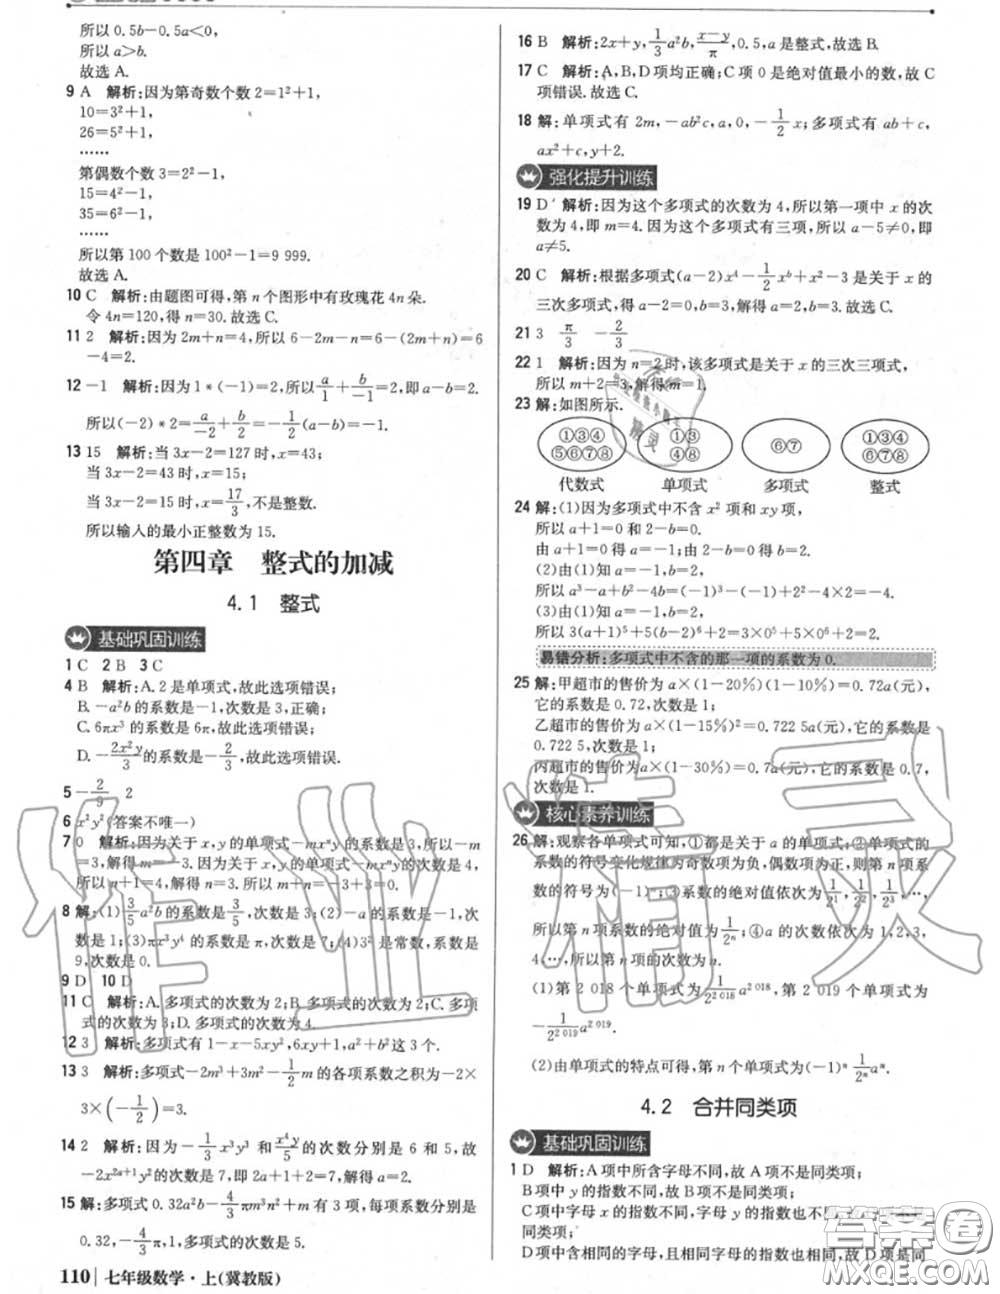 所以 0.5b-0.5a<0,
所以 a>b.
故选 A.
9 A 解析:因为第奇数个数 2=1²+1,
10=3²+1,
26=5²+1,
……
第偶数个数 3=2²-1,
15=4²-1,
35=6²-1,
……
所以第 100 个数是 100²-1=9 999.
故选 A.
10 C 解析:由题图可得,第 n 个图形中有玫瑰花 4n 朵.
令 4n=120,得 n=30.故选 C.
11 2 解析:因为 2m+n=4,所以 6-2m-n=6-(2m+n)=6
-4=2.
12 -1 解析:因为 1*(-1)=2,所以 a/1+b/(-1)=2,即 a-b=2.
所以(-2)*2=a/(-2)+b/2=-1/2(a-b)=-1.
13 15 解析:当 3x-2=127 时,x=43;
当 3x-2=43 时,x=15;
当 3x-2=15 时,x=17/3,不是整数.
所以输入的最小正整数为 15.
第四章 整式的加减
4.1 整式
基础巩固训练
1 C 2 B 3 C
4 B 解析:A.2 是单项式,故此选项错误;
B.-a²b 的系数是-1,次数是 3,正确;
C.6πx³ 的系数是 6π,故此选项错误;
D.-2x²y/3 的系数是-2/3,故此选项错误.
5 -2/9 2
6 x²y²(答案不唯一)
7 0 解析:因为关于 x,y 的单项式-mxⁿy的系数是 3,所以-m
=3,解得 m=-3.因为关于 x,y 的单项式-mxⁿy的次数是 4,
所以 n+1=4,解得 n=3.所以 m+n=-3+3=0.
8 解:(1)3/5a²b 的系数是3/5,次数是 3;(2)-a 的系数是-1,次
数是 1;(3)πx³y⁴ 的系数是 π,次数是 7;(4)3² 是常数,系数是
9,次数是 0.
9 D 10 D
11 C 解析:A.多项式的次数为 2;B.多项式的次数为 2;C.多项式
的次数为 3;D.多项式的次数为 4.
12 3 解析:多项式有 1-x-5xy²,6xy+1,a²-b² 这 3 个.
13 3 解析:多项式-2m³+3m²-1/2m 的各项系数之积为-2×
3×(-1/2)=3.
14 2 解析:因为-1/3x³y³ 和x⁴y/5的次数分别是 6 和 5,故
-2x²ᵃ⁺¹y²的次数是 7,故 2a+1+2=7,a=2.
15 解:多项式 0.32a²b-4/3πm³n²+m 有 3 项,每项系数分别是
0.32,-4/3π,1,多项式的次数是 5.
110 七年级数学·上(冀教版)
16 B 解析:2x+y,1/3a²b,(x-y)/π,0.5,a 是整式,故选 B.
17 C 解析:A,B,D 项均正确;C 项 0 是绝对值最小的数,故 C
项错误.故选 C.
18 解:单项式有 2m,-ab²c,a,0,-1/2x;多项式有 ab+c,
ax²+c,y+2.
强化提升训练
19 D 解析:因为这个多项式的次数为 4,所以第一项中 x 的次
数为 4,即 m=4.因为这个多项式有三项,所以 a-5≠0,即
a≠5.
20 C 解析:根据多项式(a-2)x⁴-1/2xᵇ+x²-3 是关于 x 的
三次多项式,得到 a-2=0,b=3,解得 a=2,b=3.故选 C.
21 3 π/3 -2/3
22 1 解析:因为 n=2 时,该多项式是关于 x 的三次三项式,
所以 m+2=3,解得 m=1.
23 解:如图所示.
①③④
⑤⑥⑦⑧
①③
④⑧
⑥⑦
①③④
⑥⑦⑧
代数式 单项式 多项式 整式
24 解:(1)因为多项式中不含 x² 项和 xy 项,
所以 a+1=0 和 2-b=0.
由 a+1=0 得 a=-1;由 2-b=0 得 b=2.
(2)由(1)知 a=-1,b=2.
所以 a³-a²+b²-4b=(-1)³-(-1)²+2²-4×2=-4.
(3)由(1)知 a=-1,b=2,
所以 3(a+1)⁵+5(b-2)⁶+2=3×0⁵+5×0⁶+2=2.
易错分析:多项式中不含的那一项的系数为 0.
25 解:甲超市的售价为 a×(1-20%)(1-10%)=0.72a(元),
它的系数是 0.72,次数是 1;
乙超市的售价为 a×(1-15%)²=0.722 5a(元),它的系数是
0.722 5,次数是 1;
丙超市的售价为 a×(1-30%)=0.7a(元),它的系数是 0.7,
次数是 1.
核心素养训练
26 解:观察各单项式可知,①都是关于 a 的单项式;②单项式的
系数的符号变化规律为奇数项为负,偶数项为正,则第 n 项系
数的符号为(-1)ⁿ;③系数的绝对值依次为1/2¹,1/2²,1/2³,…,
所以第 n 项系数的绝对值为1/2ⁿ;④a 的次数依次为 1,2,3,
4,…,所以第 n 项的次数为 n.
(1)第 2 018 个单项式为1/2²⁰¹⁸a²⁰¹⁸,第 2 019 个单项式为
-1/2²⁰¹⁹a²⁰¹⁹.
(2)由单项式的特点可得,第 n 个单项式为(-1)ⁿ1/2ⁿaⁿ.
4.2 合并同类项
基础巩固训练
1 D 解析:A 项中所含字母不同,故 A 项不是同类项;
B 项中 y 的指数不同,故 B 项不是同类项;
C 项中字母 x 的指数不同,字母 y 的指数也不同
同类项;
D 项中含有相同的字母,且相同字母的指数也相同,故 D 项是同
作业精灵
答案圈